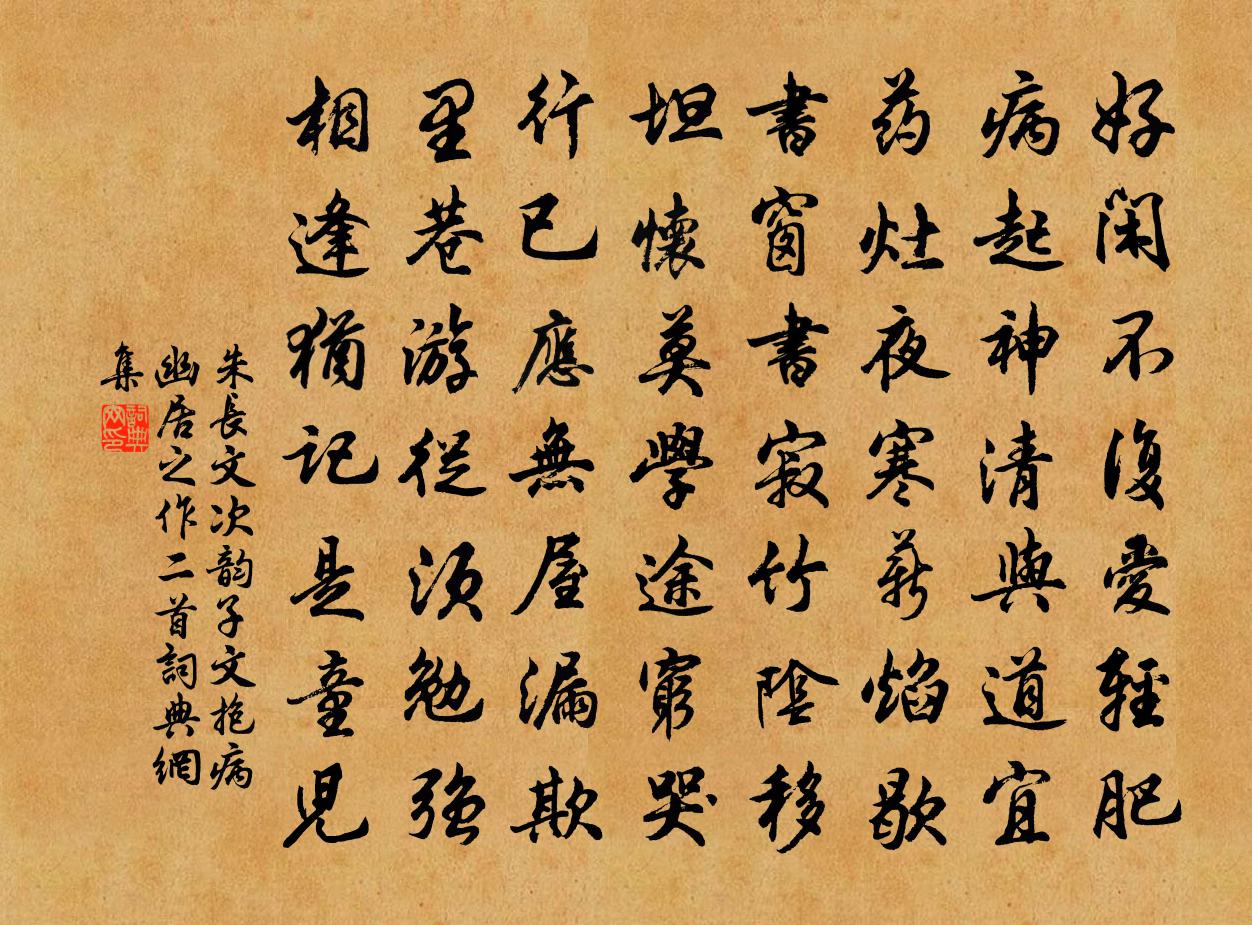 好闲不復愛輕肥
病起神清與道宜
药灶夜寒薪焰歇
書窗書寂竹陰移
坦懷莫學途窮哭
行已應無屋漏欺
里巷游從須勉強
相逢猶記是童兒
朱長文次韵子文抱病
幽居之作二首詞典網
集
詞典網印